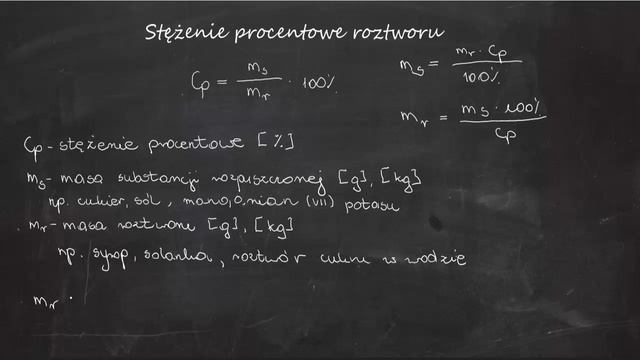 Stężenie procentowe roztworu
Cp = ms / mr · 100%
ms = mr · Cp / 100%
mr = ms · 100% / Cp
Cp - stężenie procentowe [%]
ms - masa substancji rozpuszczonej [g], [kg]
np. cukier, sól, manganian (VII) potasu
mr - masa roztworu [g], [kg]
np. syrop, solanka, roztwór cukru w wodzie
mr